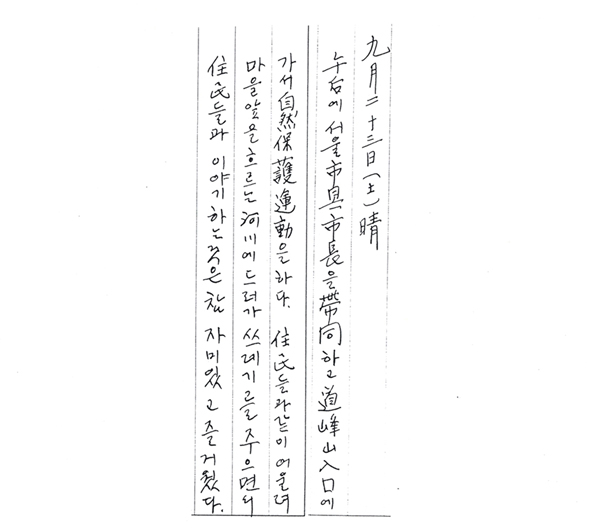 九月二十三日(土) 晴
午后에 서울市具市長을 帶同하고 道峰山入口에
가서 自然保護運動을 하다. 住民들과 같이 어울려
마을앞을 흐르는 河川에 드러가 쓰레기를 주으면서
住民들과 이야기하는것은 참 자미있고 즐거웠다.